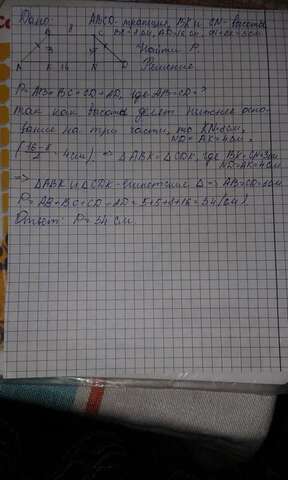 Дано: ABCD-трапеция, BK и CN-высоты
BC=8см, AD=16см, BK=CN=3см
B 8 C
Найти P.
Решение
A K 16 N D
P=AB+BC+CD+AD, где AB=CD=?
Так как высота делет нижнее осно-
вание на три части, то KN=8см,
ND=AK=4см.
(16-8/2=4см) => ΔABK=ΔCDN, где BK=CN=3см
ND=AK=4см
=> ΔABK и ΔCDN-египетские Δ => AB=CD=5см
P=AB+BC+CD+AD=5+5+8+16=34(см)
Ответ: P=34 см